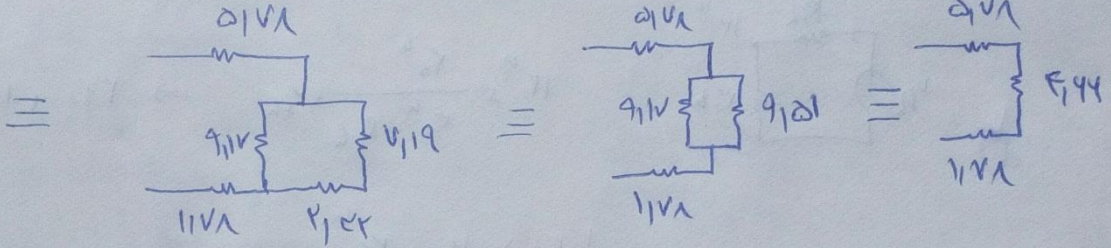 ۵,۷۸
≡
۹,۱۷
۷,۱۹
۱,۷۸
۲,۳۲
≡
۵,۷۸
۹,۱۷
۹,۵۱
۱,۷۸
≡
۵,۷۸
۴,۶۶
۱,۷۸